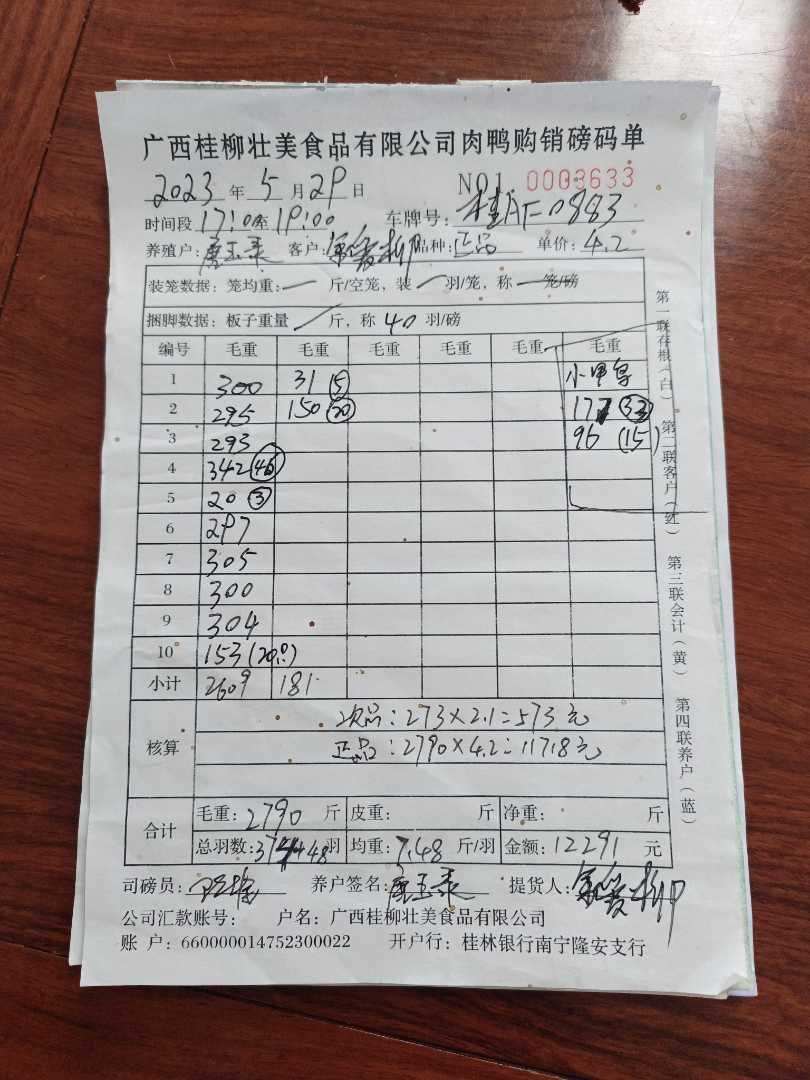 广西桂柳壮美食品有限公司肉鸭购销磅码单
2023 年 5 月 29 日 NO1 0003633
时间段 17:0至 19:00 车牌号: 桂AF0883
养殖户: 唐玉 客户: 柳 品种: 正品 单价: 4.2
装笼数据: 笼均重: 一 斤/空笼, 装 一 羽/笼, 称 一 笼/磅
捆脚数据: 板子重量 / 斤, 称 40 羽/磅
编号 毛重 毛重 毛重 毛重 毛重 毛重
1 300 31 (5) 小甲鸟
2 295 150 (20) 177 (33)
3 293 96 (15)
4 342 (46)
5 20 (3)
6 297
7 305
8 300
9 304
10 153 (20只)
小计 2609 181
核算 次品: 273×2.1=573元
正品: 2790×4.2=11718元
合计 毛重: 2790 斤 皮重: 斤 净重: 斤
总羽数: 374+48 羽 均重: 7.48 斤/羽 金额: 12291 元
司磅员: 养户签名: 唐玉 提货人: 柳
公司汇款账号: 户名: 广西桂柳壮美食品有限公司
账 户: 660000014752300022 开户行: 桂林银行南宁隆安支行
第一联存根(白) 第二联客户(红) 第三联会计(黄) 第四联养户(蓝)